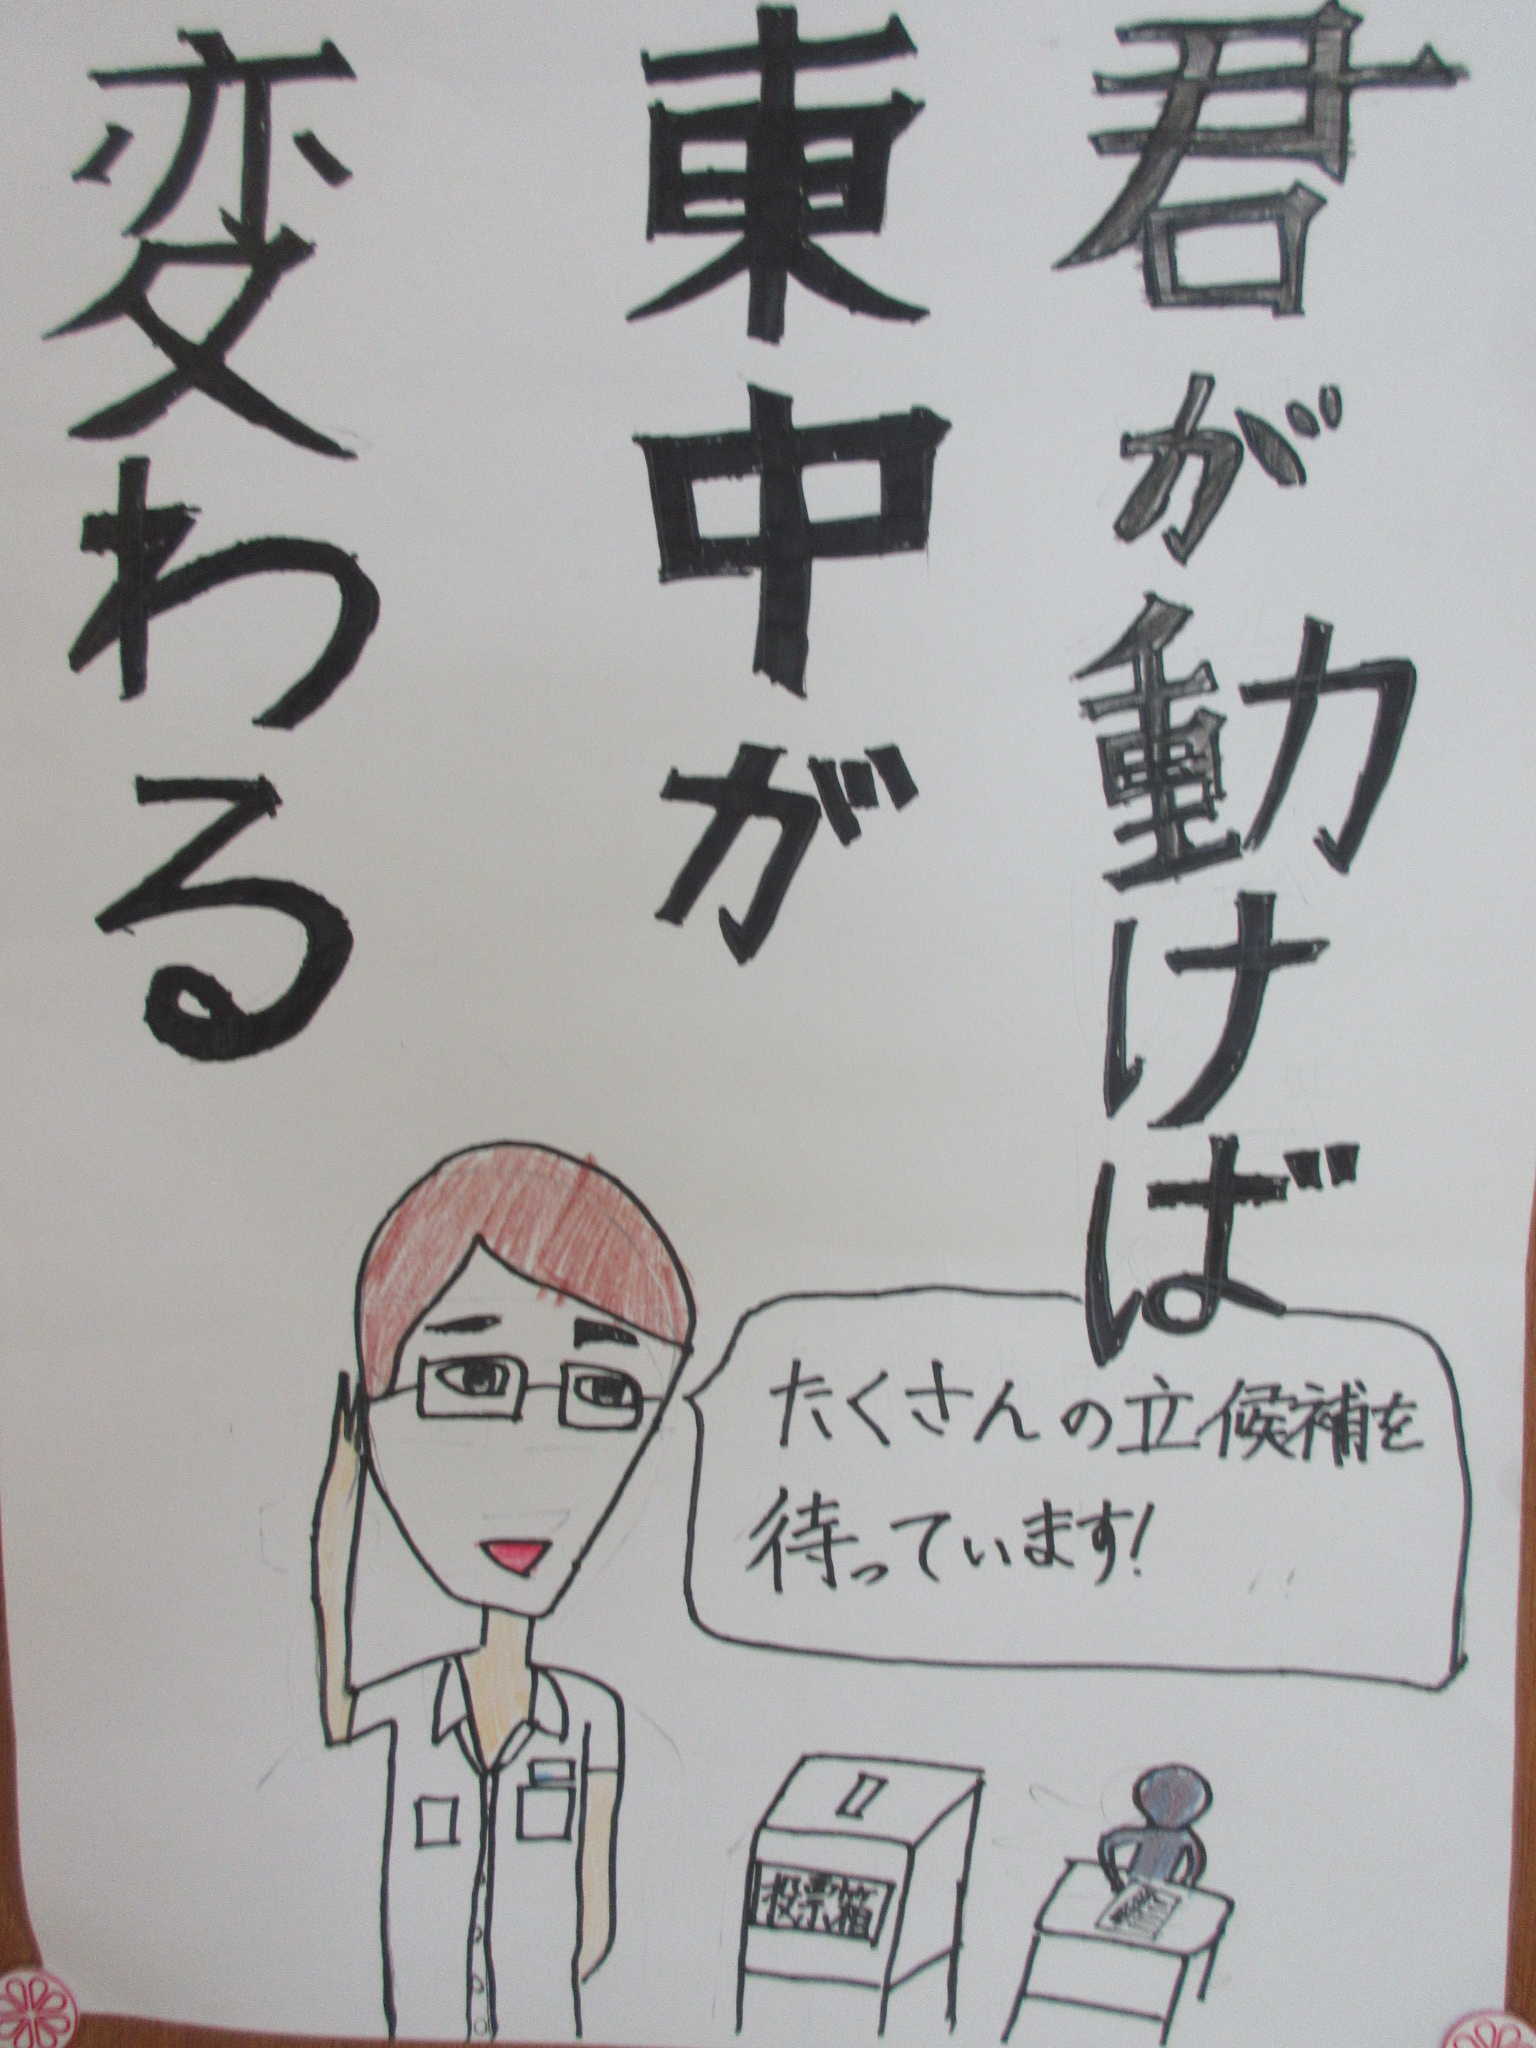 君が動けば
東中が
変わる
たくさんの立候補を
待っています!
投票箱